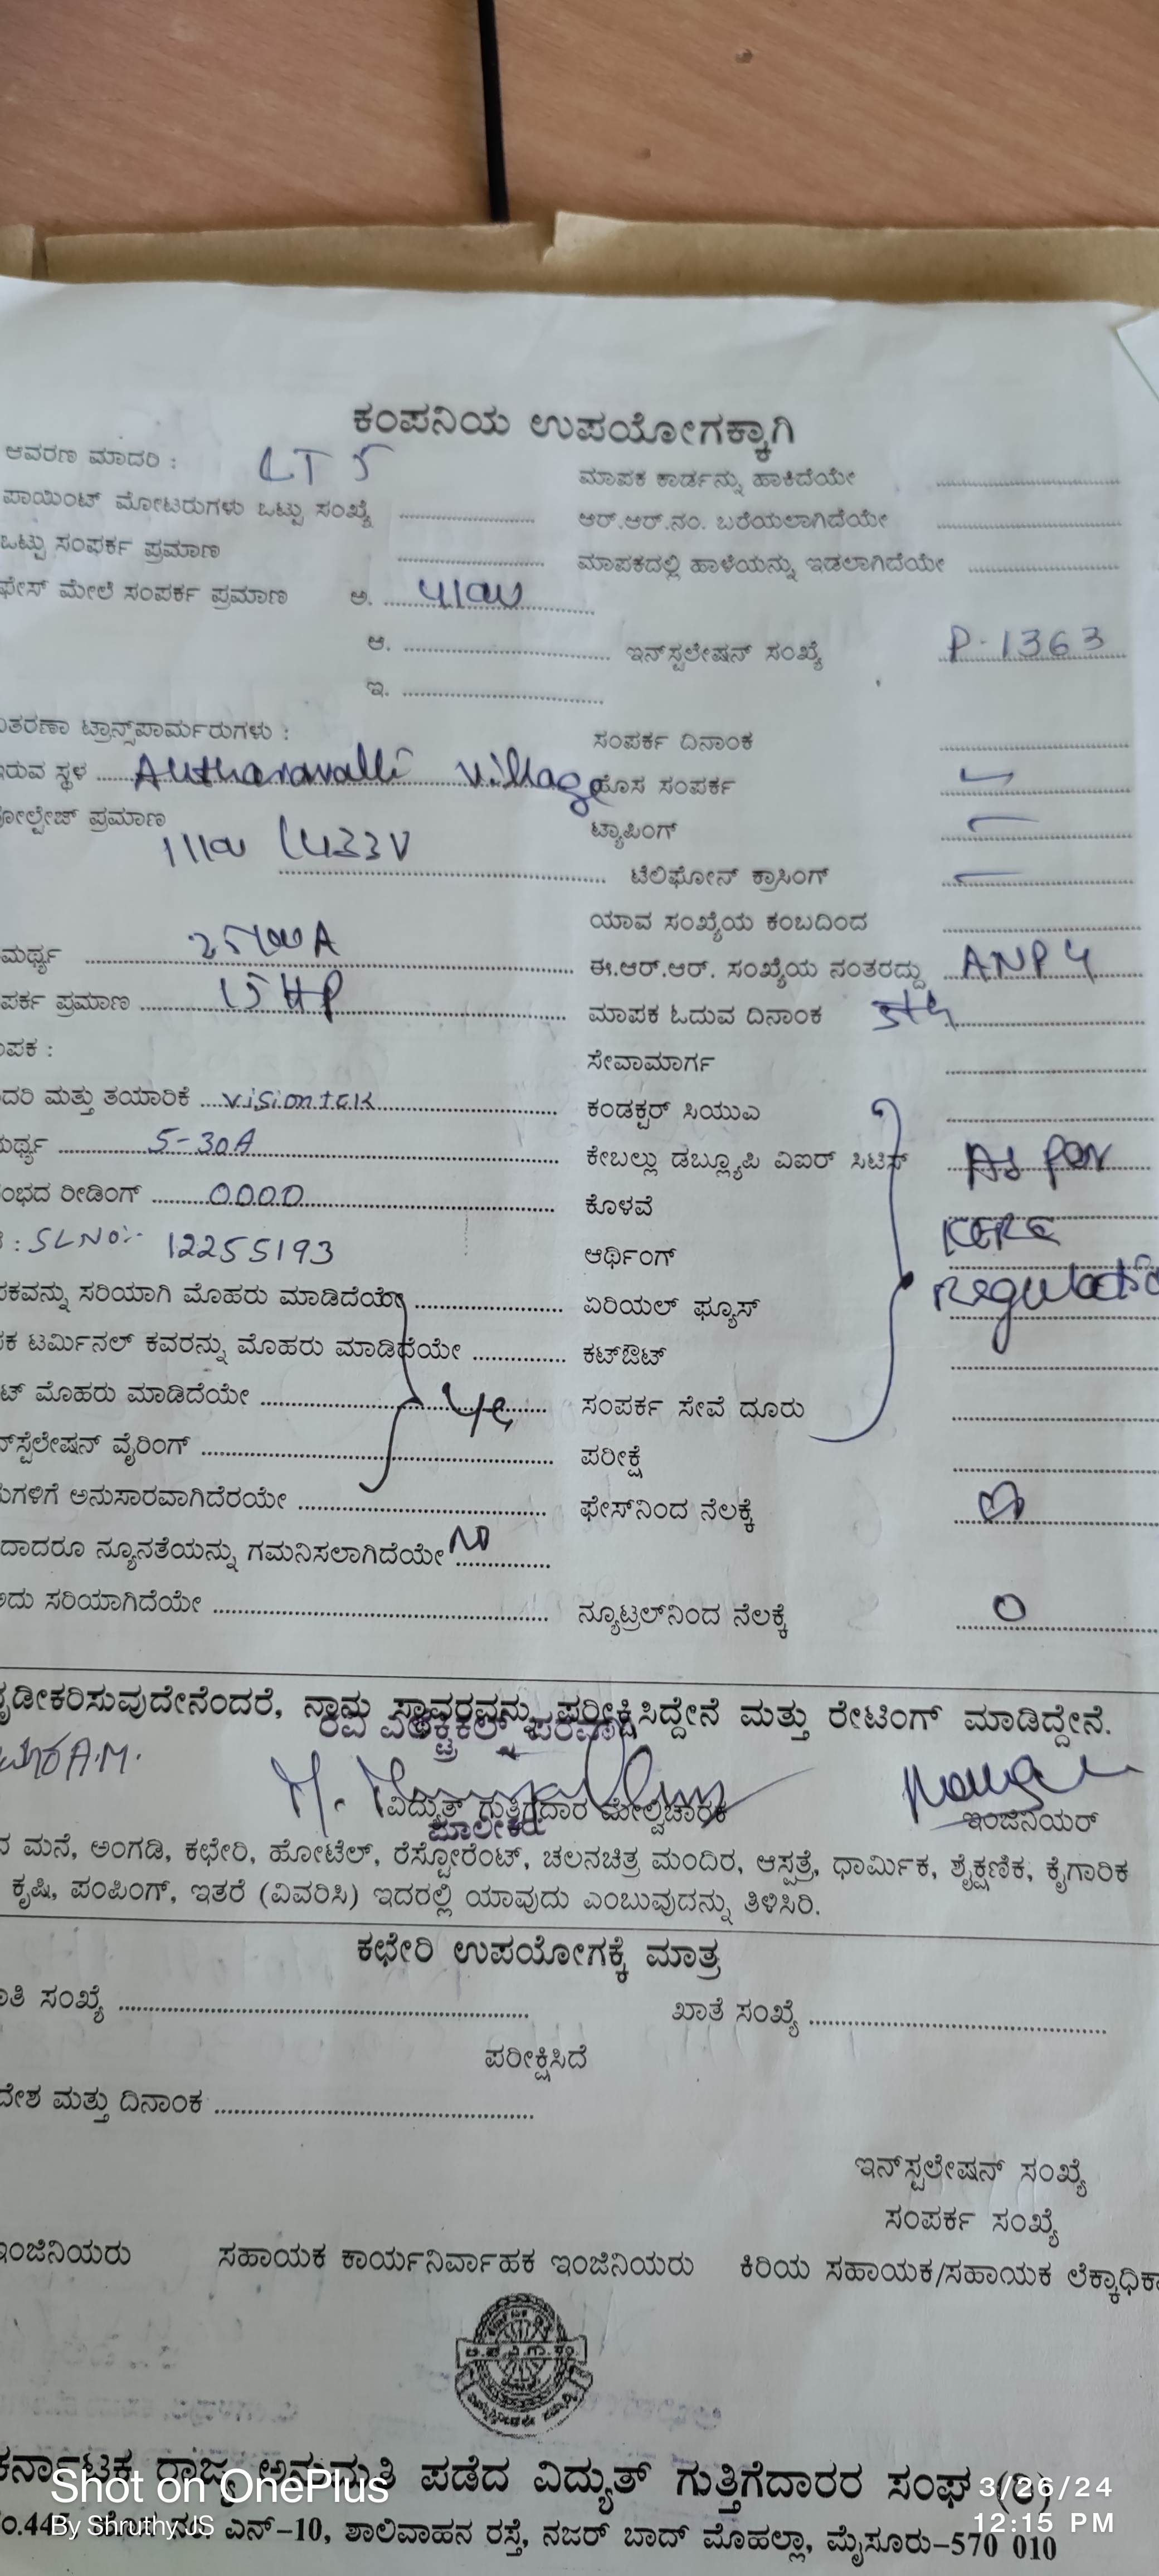 ಕಂಪನಿಯ ಉಪಯೋಗಕ್ಕಾಗಿ
ಆವರಣ ಮಾದರಿ : LT 5
ಮಾಪಕ ಕಾರ್ಡನ್ನು ಹಾಕಿದೆಯೇ
ಪಾಯಿಂಟ್ ಮೋಟರುಗಳು ಒಟ್ಟು ಸಂಖ್ಯೆ
ಆರ್.ಆರ್.ನಂ. ಬರೆಯಲಾಗಿದೆಯೇ
ಒಟ್ಟು ಸಂಪರ್ಕ ಪ್ರಮಾಣ
ಮಾಪಕದಲ್ಲಿ ಹಾಳೆಯನ್ನು ಇಡಲಾಗಿದೆಯೇ
ಫೇಸ್ ಮೇಲೆ ಸಂಪರ್ಕ ಪ್ರಮಾಣ ಅ.
ಆ.
ಇನ್‌ಸ್ಟಲೇಷನ್ ಸಂಖ್ಯೆ P-1363
ಇ.
ತರಣಾ ಟ್ರಾನ್ಸ್‌ಪಾರ್ಮರುಗಳು :
ಸಂಪರ್ಕ ದಿನಾಂಕ
ಇರುವ ಸ್ಥಳ Antharavalli village
ಹೊಸ ಸಂಪರ್ಕ
ವೋಲ್ಟೇಜ್ ಪ್ರಮಾಣ
ಟ್ಯಾಪಿಂಗ್
433V
ಟೆಲಿಫೋನ್ ಕ್ರಾಸಿಂಗ್
ಯಾವ ಸಂಖ್ಯೆಯ ಕಂಬದಿಂದ
ಮರ್ಥ್ಯ
ಈ.ಆರ್.ಆರ್. ಸಂಖ್ಯೆಯ ನಂತರದ್ದು ANP4
ಪರ್ಕ ಪ್ರಮಾಣ 15 HP
ಮಾಪಕ ಓದುವ ದಿನಾಂಕ 5th
ಪಕ :
ಸೇವಾಮಾರ್ಗ
ದರಿ ಮತ್ತು ತಯಾರಿಕೆ visiontek
ಕಂಡಕ್ಟರ್ ಸಿಯುಎ
ಮರ್ಥ್ಯ 5-30A
ಕೇಬಲ್ಲು ಡಬ್ಲ್ಯೂಪಿ ವಿಐರ್ As per
ಂಭದ ರೀಡಿಂಗ್ 0000
ಕೊಳವೆ KERC
: SL NO:- 12255193
ಆರ್ಥಿಂಗ್
ಪಕವನ್ನು ಸರಿಯಾಗಿ ಮೊಹರು ಮಾಡಿದೆಯೇ
ಏರಿಯಲ್ ಫ್ಯೂಸ್
ಪಕ ಟರ್ಮಿನಲ್ ಕವರನ್ನು ಮೊಹರು ಮಾಡಿದೆಯೇ
ಕಟ್‌ಔಟ್
ಟ್ ಮೊಹರು ಮಾಡಿದೆಯೇ
ಸಂಪರ್ಕ ಸೇವೆ ದೂರು
ನ್‌ಸ್ಟೆಲೇಷನ್ ವೈರಿಂಗ್
ಪರೀಕ್ಷೆ
ಗಳಿಗೆ ಅನುಸಾರವಾಗಿದೆರಯೇ
ಫೇಸ್‌ನಿಂದ ನೆಲಕ್ಕೆ
ದಾದರೂ ನ್ಯೂನತೆಯನ್ನು ಗಮನಿಸಲಾಗಿದೆಯೇ NO
ಅದು ಸರಿಯಾಗಿದೆಯೇ
ನ್ಯೂಟ್ರಲ್‌ನಿಂದ ನೆಲಕ್ಕೆ 0
ೃಡೀಕರಿಸುವುದೇನೆಂದರೆ, ನಾನು ಸ್ಥಾವರವನ್ನು ಪರೀಕ್ಷಿಸಿದ್ದೇನೆ ಮತ್ತು ರೇಟಿಂಗ್ ಮಾಡಿದ್ದೇನೆ.
ವಿದ್ಯುತ್ ಗುತ್ತಿಗೆದಾರ ಮೇಲ್ವಿಚಾರಕ
ಮಾಲೀಕರು
ಇಂಜಿನಿಯರ್
ಮನೆ, ಅಂಗಡಿ, ಕಛೇರಿ, ಹೋಟೆಲ್, ರೆಸ್ಟೋರೆಂಟ್, ಚಲನಚಿತ್ರ ಮಂದಿರ, ಆಸ್ಪತ್ರೆ, ಧಾರ್ಮಿಕ, ಶೈಕ್ಷಣಿಕ, ಕೈಗಾರಿಕ
ಕೃಷಿ, ಪಂಪಿಂಗ್, ಇತರೆ (ವಿವರಿಸಿ) ಇದರಲ್ಲಿ ಯಾವುದು ಎಂಬುವುದನ್ನು ತಿಳಿಸಿರಿ.
ಕಛೇರಿ ಉಪಯೋಗಕ್ಕೆ ಮಾತ್ರ
ತಿ ಸಂಖ್ಯೆ
ಖಾತೆ ಸಂಖ್ಯೆ
ಪರೀಕ್ಷಿಸಿದೆ
ದೇಶ ಮತ್ತು ದಿನಾಂಕ
ಇನ್‌ಸ್ಟಲೇಷನ್ ಸಂಖ್ಯೆ
ಸಂಪರ್ಕ ಸಂಖ್ಯೆ
ಇಂಜಿನಿಯರು
ಸಹಾಯಕ ಕಾರ್ಯನಿರ್ವಾಹಕ ಇಂಜಿನಿಯರು
ಕಿರಿಯ ಸಹಾಯಕ/ಸಹಾಯಕ ಲೆಕ್ಕಾಧಿಕಾ
ಕರ್ನಾಟಕ ರಾಜ್ಯ ಅನುಮತಿ ಪಡೆದ ವಿದ್ಯುತ್ ಗುತ್ತಿಗೆದಾರರ ಸಂಘ (ರಿ)
ಎನ್-10, ಶಾಲಿವಾಹನ ರಸ್ತೆ, ನಜರ್ ಬಾದ್ ಮೊಹಲ್ಲಾ, ಮೈಸೂರು-570 010
Shot on OnePlus
By Shruthy JS
3/26/24
12:15 PM